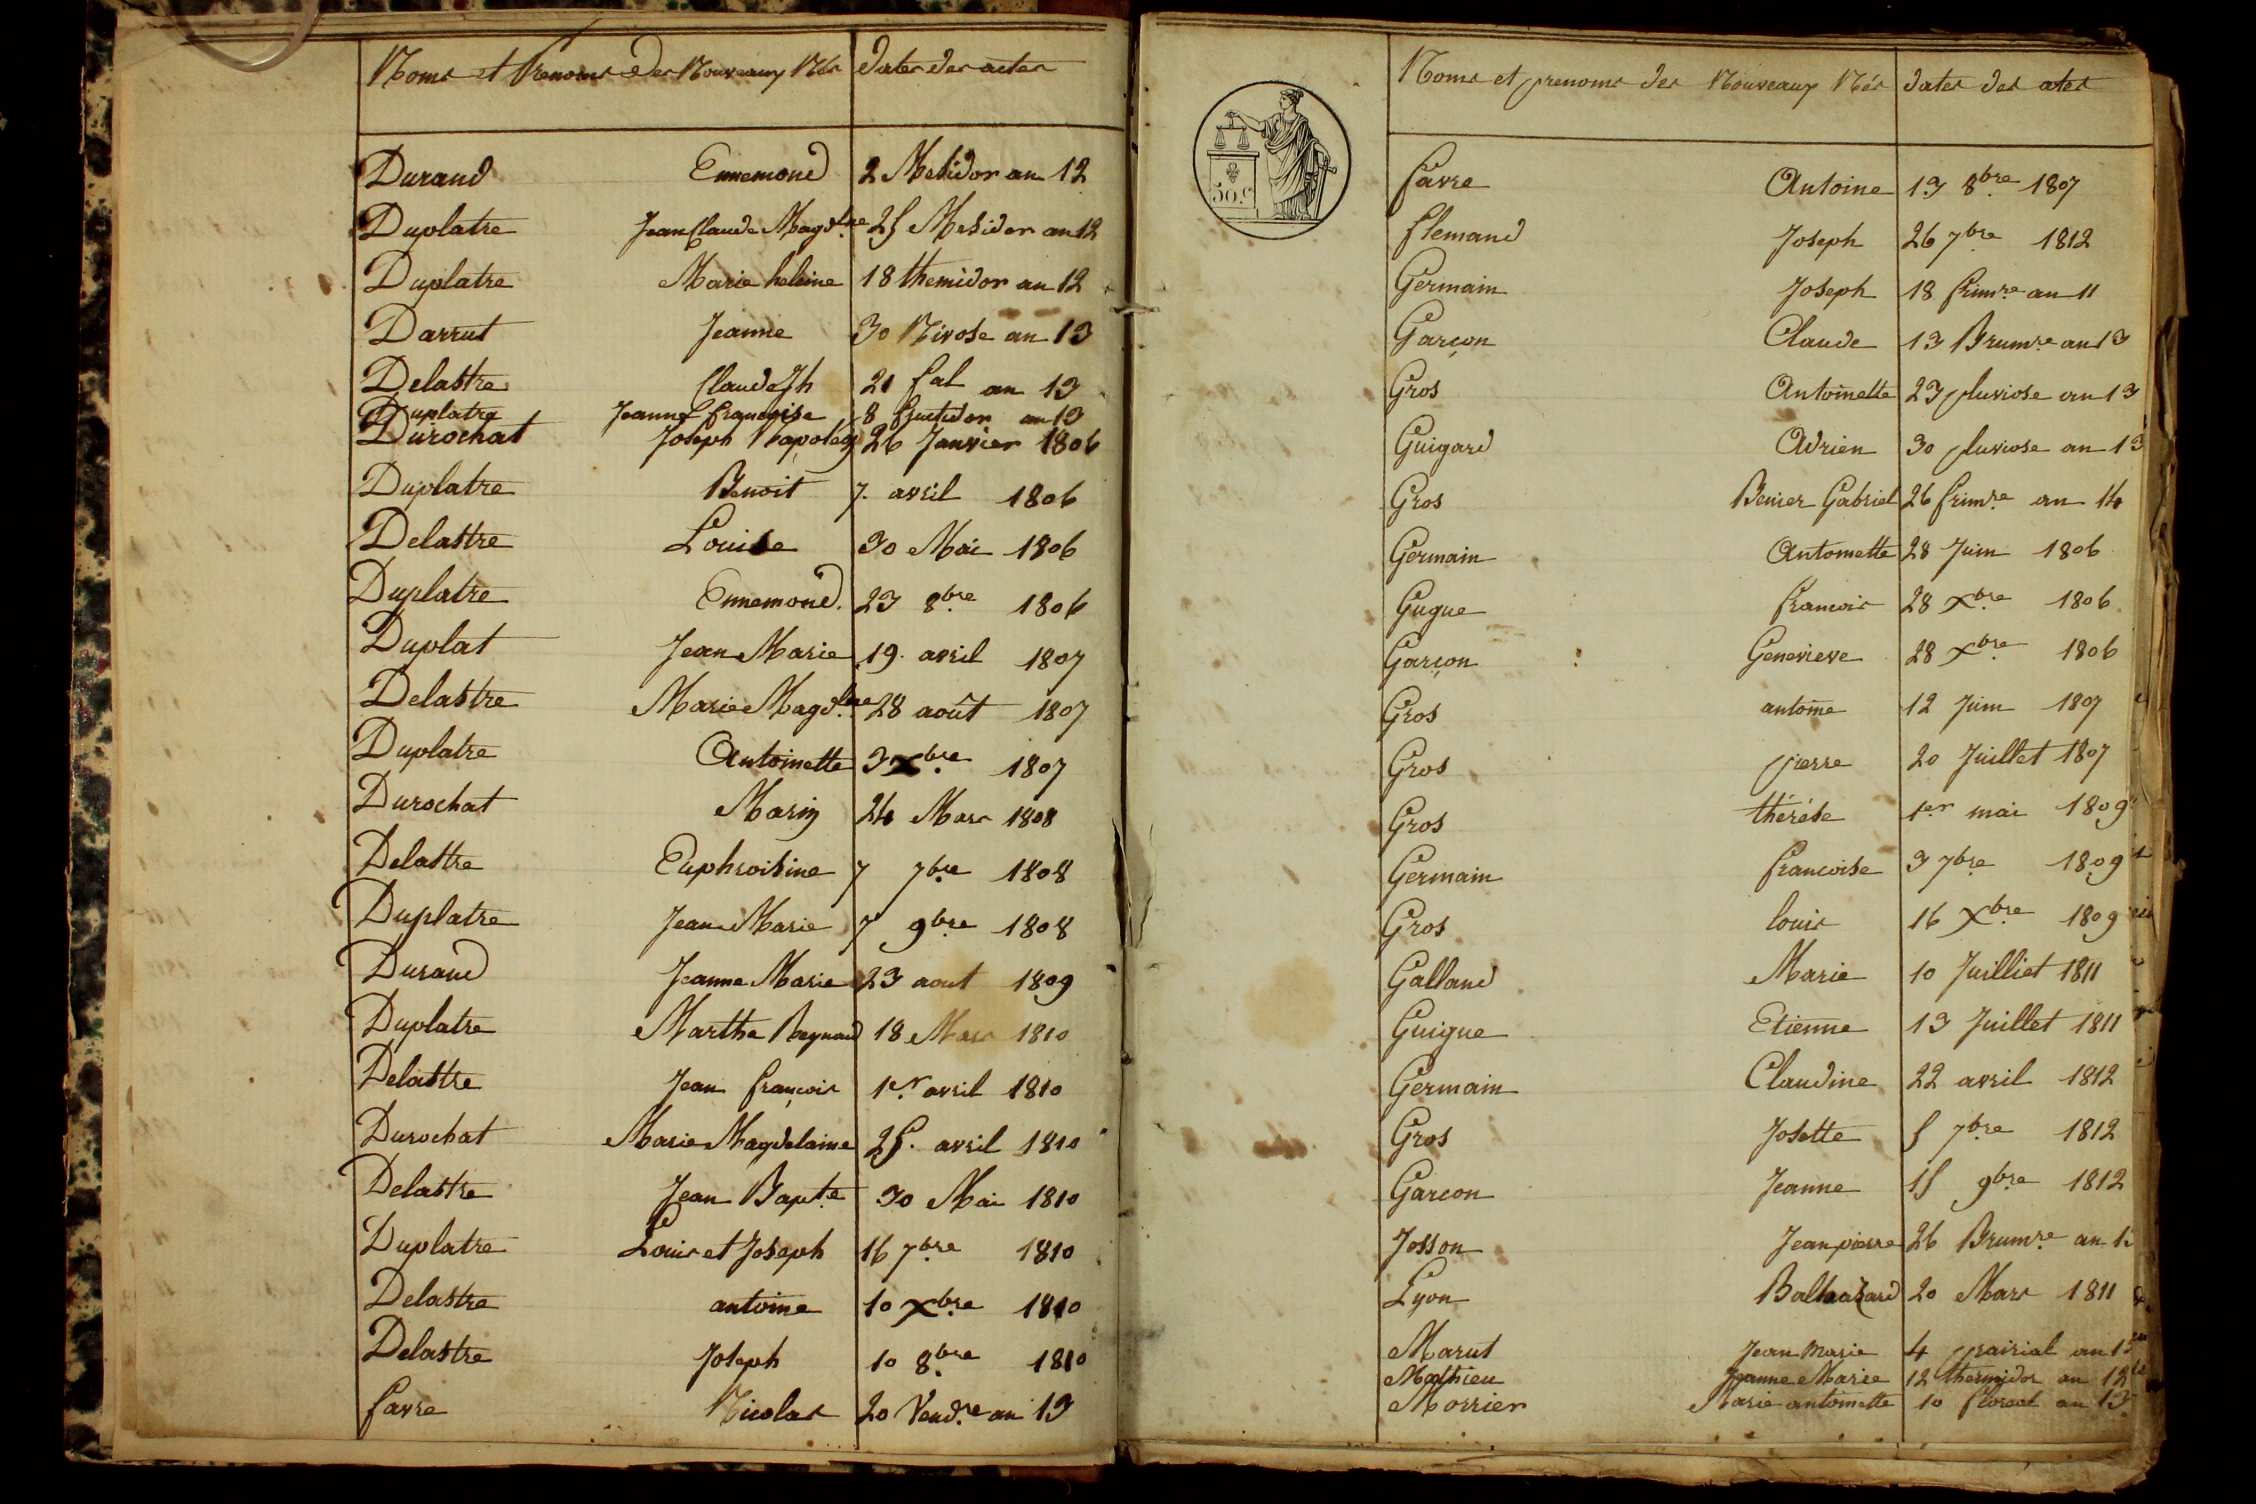 Noms et Prenoms des Nouveaux Nés dates des actes
Durand Ennemond 2 Mesidor an 12
Duplatre Jean Claude Magd.lne 25 Mesidor an 12
Duplatre Marie heleine 18 themidor an 12
Darrut Jeanne 30 Nivose an 13
Delastre Claude Jh 21 fal an 13
Duplatre Jeanne francoise 8 fructidor an 13
Durochat Joseph Napoléon 26 Janvier 1806
Duplatre Benoit 7. avril 1806
Delastre Louise 30 Mai 1806
Duplatre Ennemond. 23 8.bre 1806
Duplat Jean Marie 19. avril 1807
Delastre Marie Magd.lne 28 août 1807
Duplatre Antoinette 3 X.bre 1807
Durochat Marin 24 Mars 1808
Delastre Euphroisine 7 7.bre 1808
Duplatre Jean Marie 7 9.bre 1808
Durand Jeanne Marie 23 aout 1809
Duplatre Marthe Reynaud 18 Mars 1810
Delastre Jean françois 1.er avril 1810
Durochat Marie Magdelaine 25. avril 1810
Delastre Jean Bapt.e 30 Mai 1810
Duplatre Louis et Joseph 16 7.bre 1810
Delastre antoine 10 X.bre 1810
Delastre Joseph 10 8.bre 1810
favre Nicolas 20 Vend.re an 13
50.C
Noms et prenoms des Nouveaux Nés dates des ates
favre Antoine 13 8.bre 1807
flemand Joseph 26 7.bre 1812
Germain Joseph 18 frim.re an 11
Garçon Claude 13 Brum.re an 13
Gros Antoinette 23 pluviose an 13
Guigard Adrien 30 pluviose an 13
Gros Gabriel 26 frim.re an 14
Germain Antoinette 28 Juin 1806
Gugue francois 28 X.bre 1806
Garçon Genevieve 28 X.bre 1806
Gros antoine 12 Juin 1807
Gros pierre 20 Juillet 1807
Gros thérése 1er mai 1809
Germain francoise 3 7.bre 1809
Gros louis 16 X.bre 1809
Galland Marie 10 Juilliet 1811
Guigue Etienne 13 Juillet 1811
Germain Claudine 22 avril 1812
Gros Josette 5 7.bre 1812
Garcon Jeanne 15 9.bre 1812
Josson Jean pierre 26 Brum.re an
Lyon Balthazard 20 Mars 1811
Marut Jean Marie 4 prairial an
Mathieu Jeanne Marie 12 thermidor an 12
Morrier Marie antoinette 10 floreal an 13